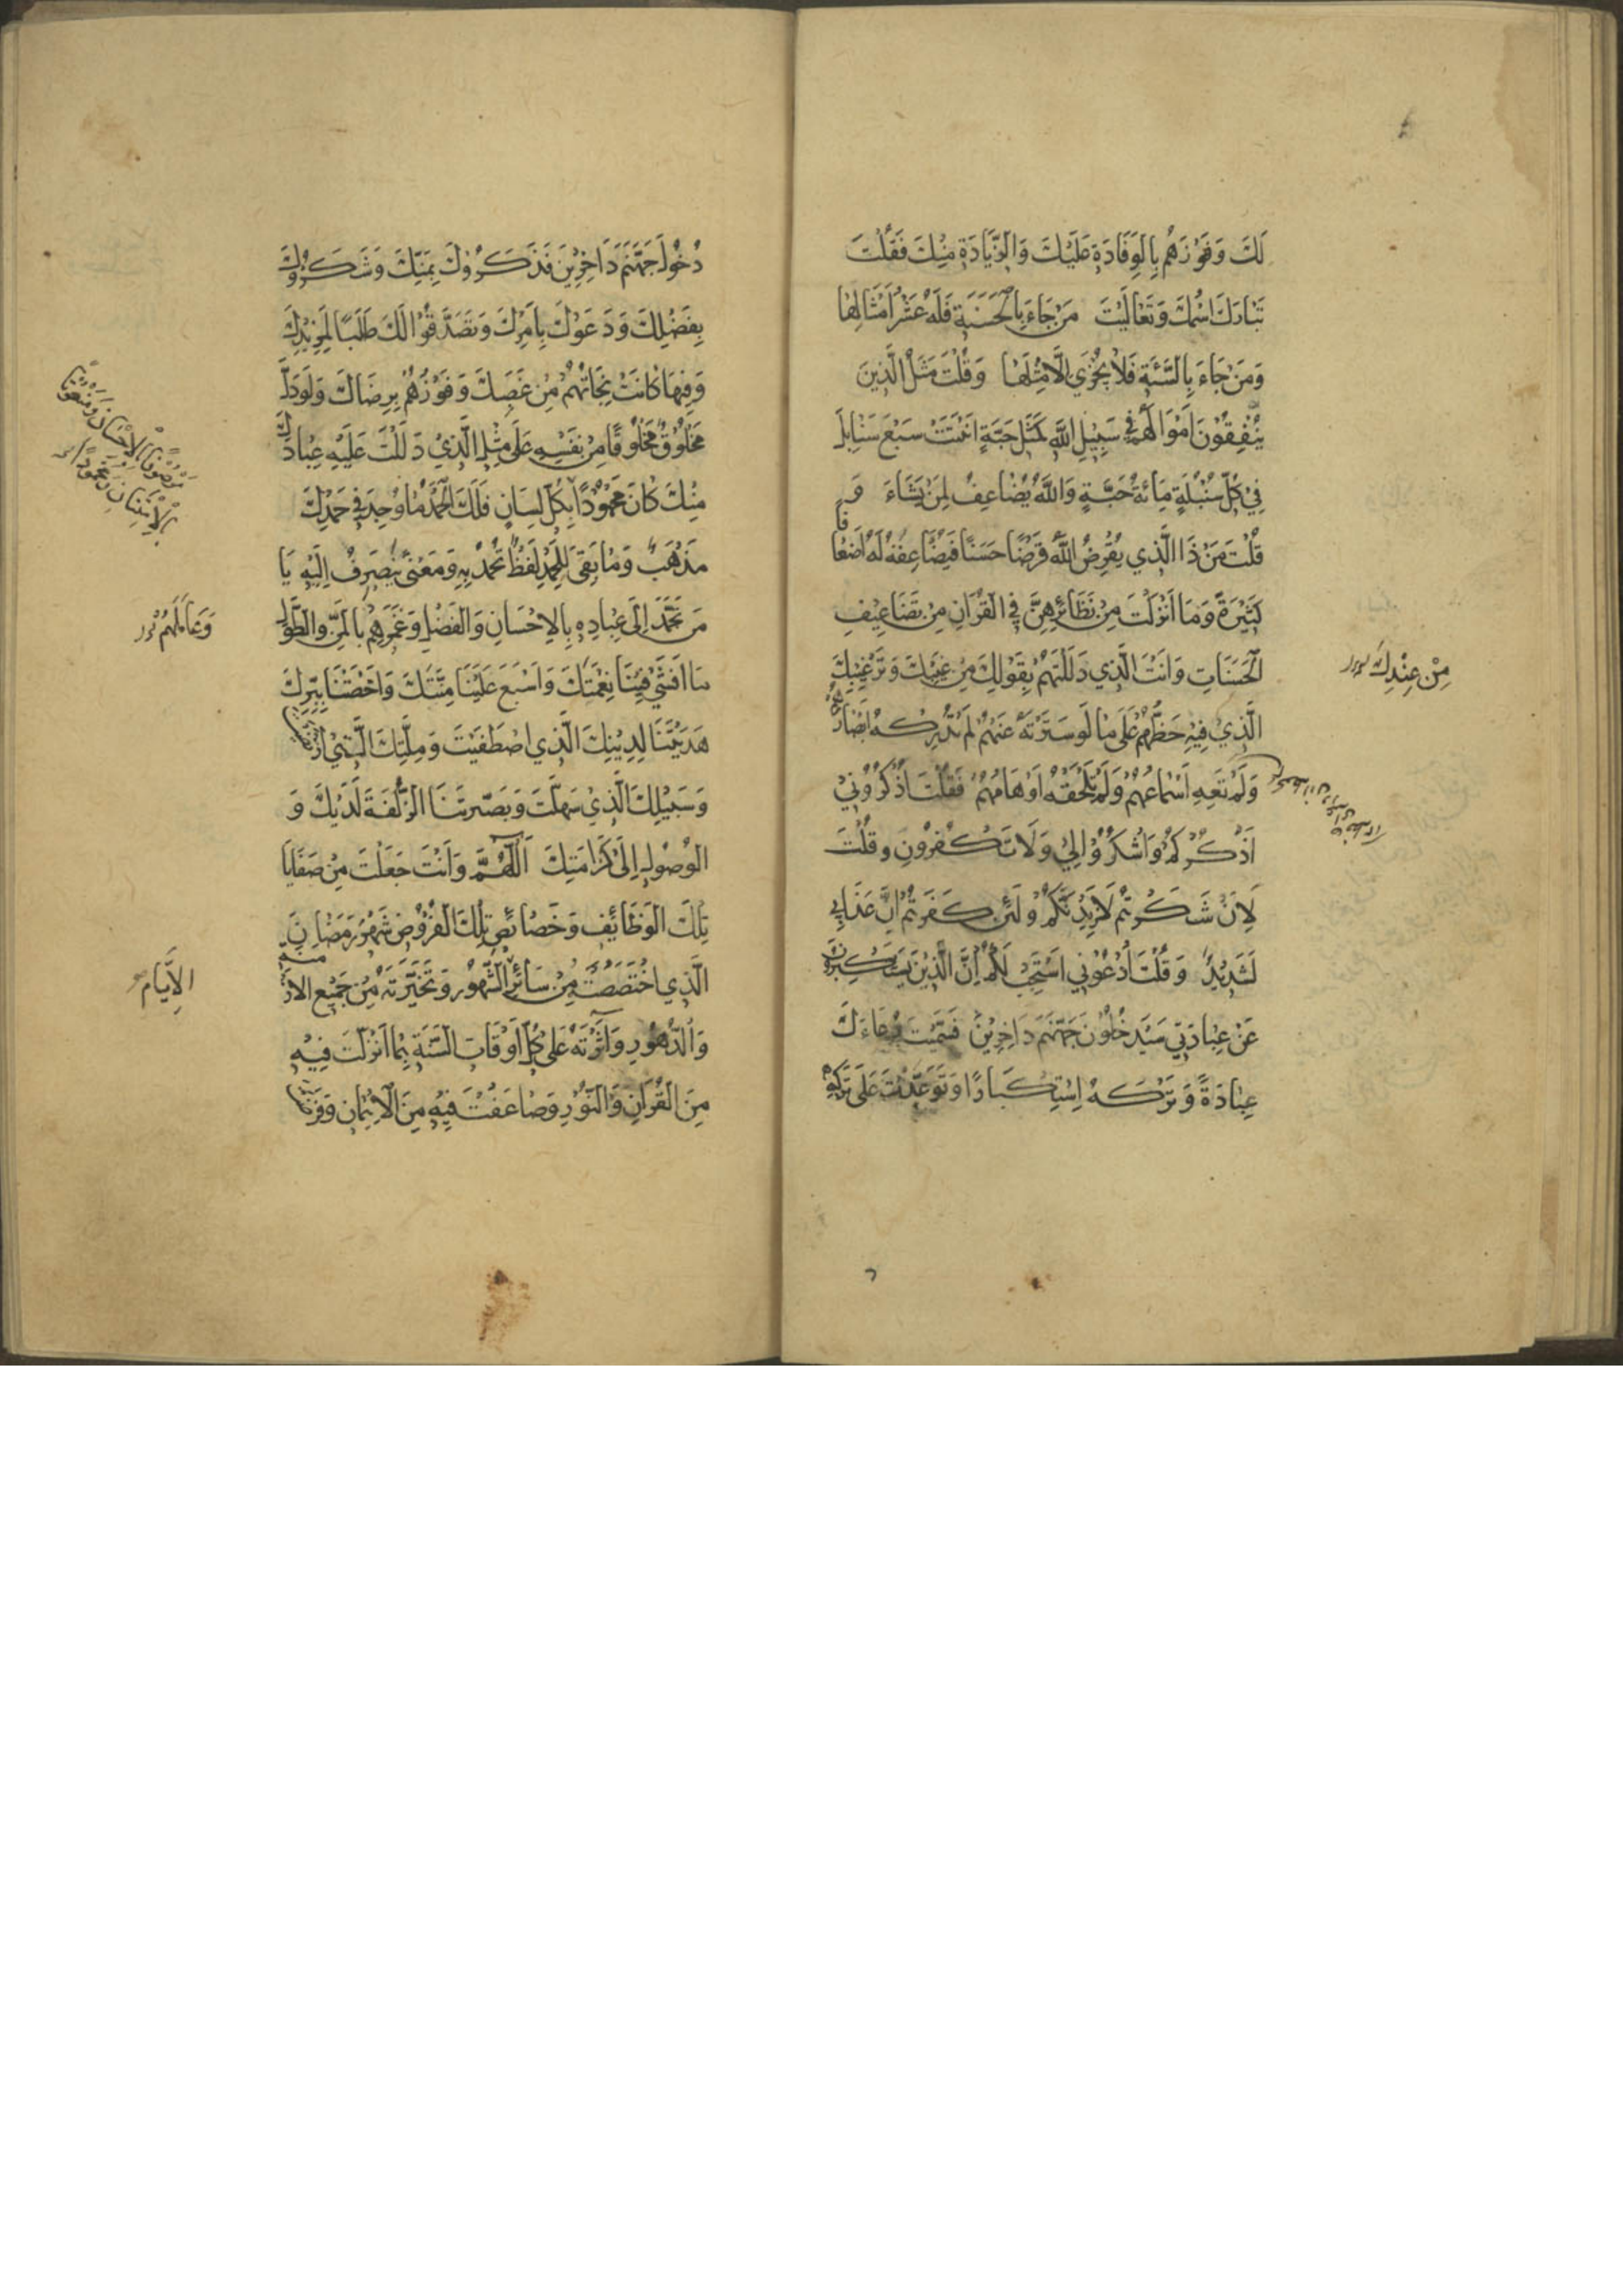 لَكَ وَفَوْزَهُم بِالوِفَادَةِ عَلَيْكَ وَالزِّيَادَةِ مِنْكَ فَقُلْتَ
تَبَارَكَ اسْمُكَ وَتَعَالَيْتَ مَنْ جَاءَ بِالْحَسَنَةِ فَلَهُ عَشْرُ اَمْثَالِهَا
وَمَنْ جَاءَ بِالسَّيِّئَةِ فَلَا يُجْزَي اِلَّا مِثْلَهَا وَقُلْتَ مَثَلُ الَّذِينَ
يُنْفِقُونَ اَمْوَالَهُمْ فِي سَبِيْلِ اللّٰهِ كَمَثَلِ حَبَّةٍ اَنْبَتَتْ سَبْعَ سَنَابِلَ
فِي كُلِّ سُنْبُلَةٍ مِائَةُ حَبَّةٍ وَاللّٰهُ يُضَاعِفُ لِمَنْ يَشَاءُ وَ
قُلْتَ مَنْ ذَا الَّذِي يُقْرِضُ اللّٰهَ قَرْضًا حَسَنًا فَيُضَاعِفَهُ لَهُ اَضْعَافًا
كَثِيْرَةً وَمَا اَنْزَلْتَ مِنْ نَظَائِرِهِنَّ فِي القُرْآنِ مِنْ تَضَاعِيْفِ
الْحَسَنَاتِ وَاَنْتَ الَّذِي دَلَلْتَهُمْ بِقَوْلِكَ مِنْ غَيْبِكَ وَتَرْغِيْبِكَ
مِنْ عِنْدِكَ
الَّذِي فِيْهِ حَظُّهُمْ عَلَى مَا لَوْ سَتَرْتَهُ عَنْهُمْ لَمْ تُدْرِكْهُ اَبْصَارُهُمْ
وَلَمْ تَعِهِ اَسْمَاعُهُمْ وَلَمْ تَلْحَقْهُ اَوْهَامُهُمْ فَقُلْتَ اذْكُرُوْنِيْ
اَذْكُرْكُمْ وَاشْكُرُوْا لِيْ وَلَا تَكْفُرُونِ وقُلْتَ
لَاِنْ شَكَرْتُمْ لَاَزِيْدَنَّكُمْ وَلَئِنْ كَفَرْتُمْ اِنَّ عَذَابِي
لَشَدِيْدٌ وَقُلْتَ اُدْعُوْنِي اَسْتَجِبْ لَكُمْ اِنَّ الَّذِيْنَ يَسْتَكْبِرُوْنَ
عَنْ عِبَادَتِي سَيَدْخُلُوْنَ جَهَنَّمَ دَاخِرِيْنَ فَسَمَّيْتَ دُعَاءَكَ
عِبَادَةً وَتَرْكَهُ اِسْتِكْبَارًا وَتَوَعَّدْتَ عَلَى تَرْكِهِ
دُخُولَ جَهَنَّمَ دَاخِرِيْنَ فَذَكَرُوْكَ بِمَنِّكَ وَشَكَرُوْكَ
بِفَضْلِكَ وَدَعَوْكَ بِاَمْرِكَ وَتَصَدَّقُوْا لَكَ طَلَبًا لِمَزِيْدِكَ
وَفِيْهَا كَانَتْ نَجَاتُهُمْ مِنْ غَضَبِكَ وَفَوْزُهُمْ بِرِضَاكَ وَلَوْ دَلَّ
مَخْلُوْقٌ مَخْلُوْقًا مِنْ نَفْسِهِ عَلَى مِثْلِ الَّذِيْ دَلَلْتَ عَلَيْهِ عِبَادَكَ
مَوْصُوفًا بِالْاِحْسَانِ وَمَنْعُوْتًا
بِالْاِمْتِنَانِ وَمَحْمُودًا
مِنْكَ كَانَ مَحْمُوْدًا بِكُلِّ لِسَانٍ فَلَكَ الْحَمْدُ مَا وُجِدَ فِي حَمْدِكَ
مَذْهَبٌ وَمَا بَقِيَ لِلْحَمْدِ لَفْظٌ تُحْمَدُ بِهِ وَمَعْنًى يَنْصَرِفُ اِلَيْهِ يَا
مَنْ تَحَمَّدَ اِلَى عِبَادِهِ بِالاِحْسَانِ وَالْفَضْلِ وَغَمَرَهُمْ بِالْمَنِّ وَالطَّوْلِ
وَعَامَلَهُمْ
مَا اَفْشَى فِيْنَا نِعْمَتَكَ وَاَسْبَغَ عَلَيْنَا مِنَّتَكَ وَاَخَصَّنَا بِبِرِّكَ
هَدَيْتَنَا لِدِيْنِكَ الَّذِي اصْطَفَيْتَ وَمِلَّتِكَ الَّتِي ارْتَضَيْتَ
وَسَبِيْلِكَ الَّذِيْ سَهَّلْتَ وَبَصَّرْتَنَا الزُّلْفَةَ لَدَيْكَ وَ
الوُصُوْلَ اِلَى كَرَامَتِكَ اَللّٰهُمَّ وَاَنْتَ جَعَلْتَ مِنْ صَفَايَا
تِلْكَ الوَظَائِفِ وَخَصَائِصِ تِلْكَ الفُرُوْضِ شَهْرَ رَمَضَانَ
الَّذِي اخْتَصَصْتَهُ مِنْ سَائِرِ الشُّهُوْرِ وَتَخَيَّرْتَهُ مِنْ جَمِيْعِ الاَزْمِنَةِ
الاَيَّامِ
وَالدُّهُوْرِ وَآثَرْتَهُ عَلَى كُلِّ اَوْقَاتِ السَّنَةِ بِمَا اَنْزَلْتَ فِيْهِ
مِنَ القُرْآنِ وَالنُّوْرِ وَضَاعَفْتَ فِيْهِ مِنَ الْاِيْمَانِ وَفَرَضْتَ